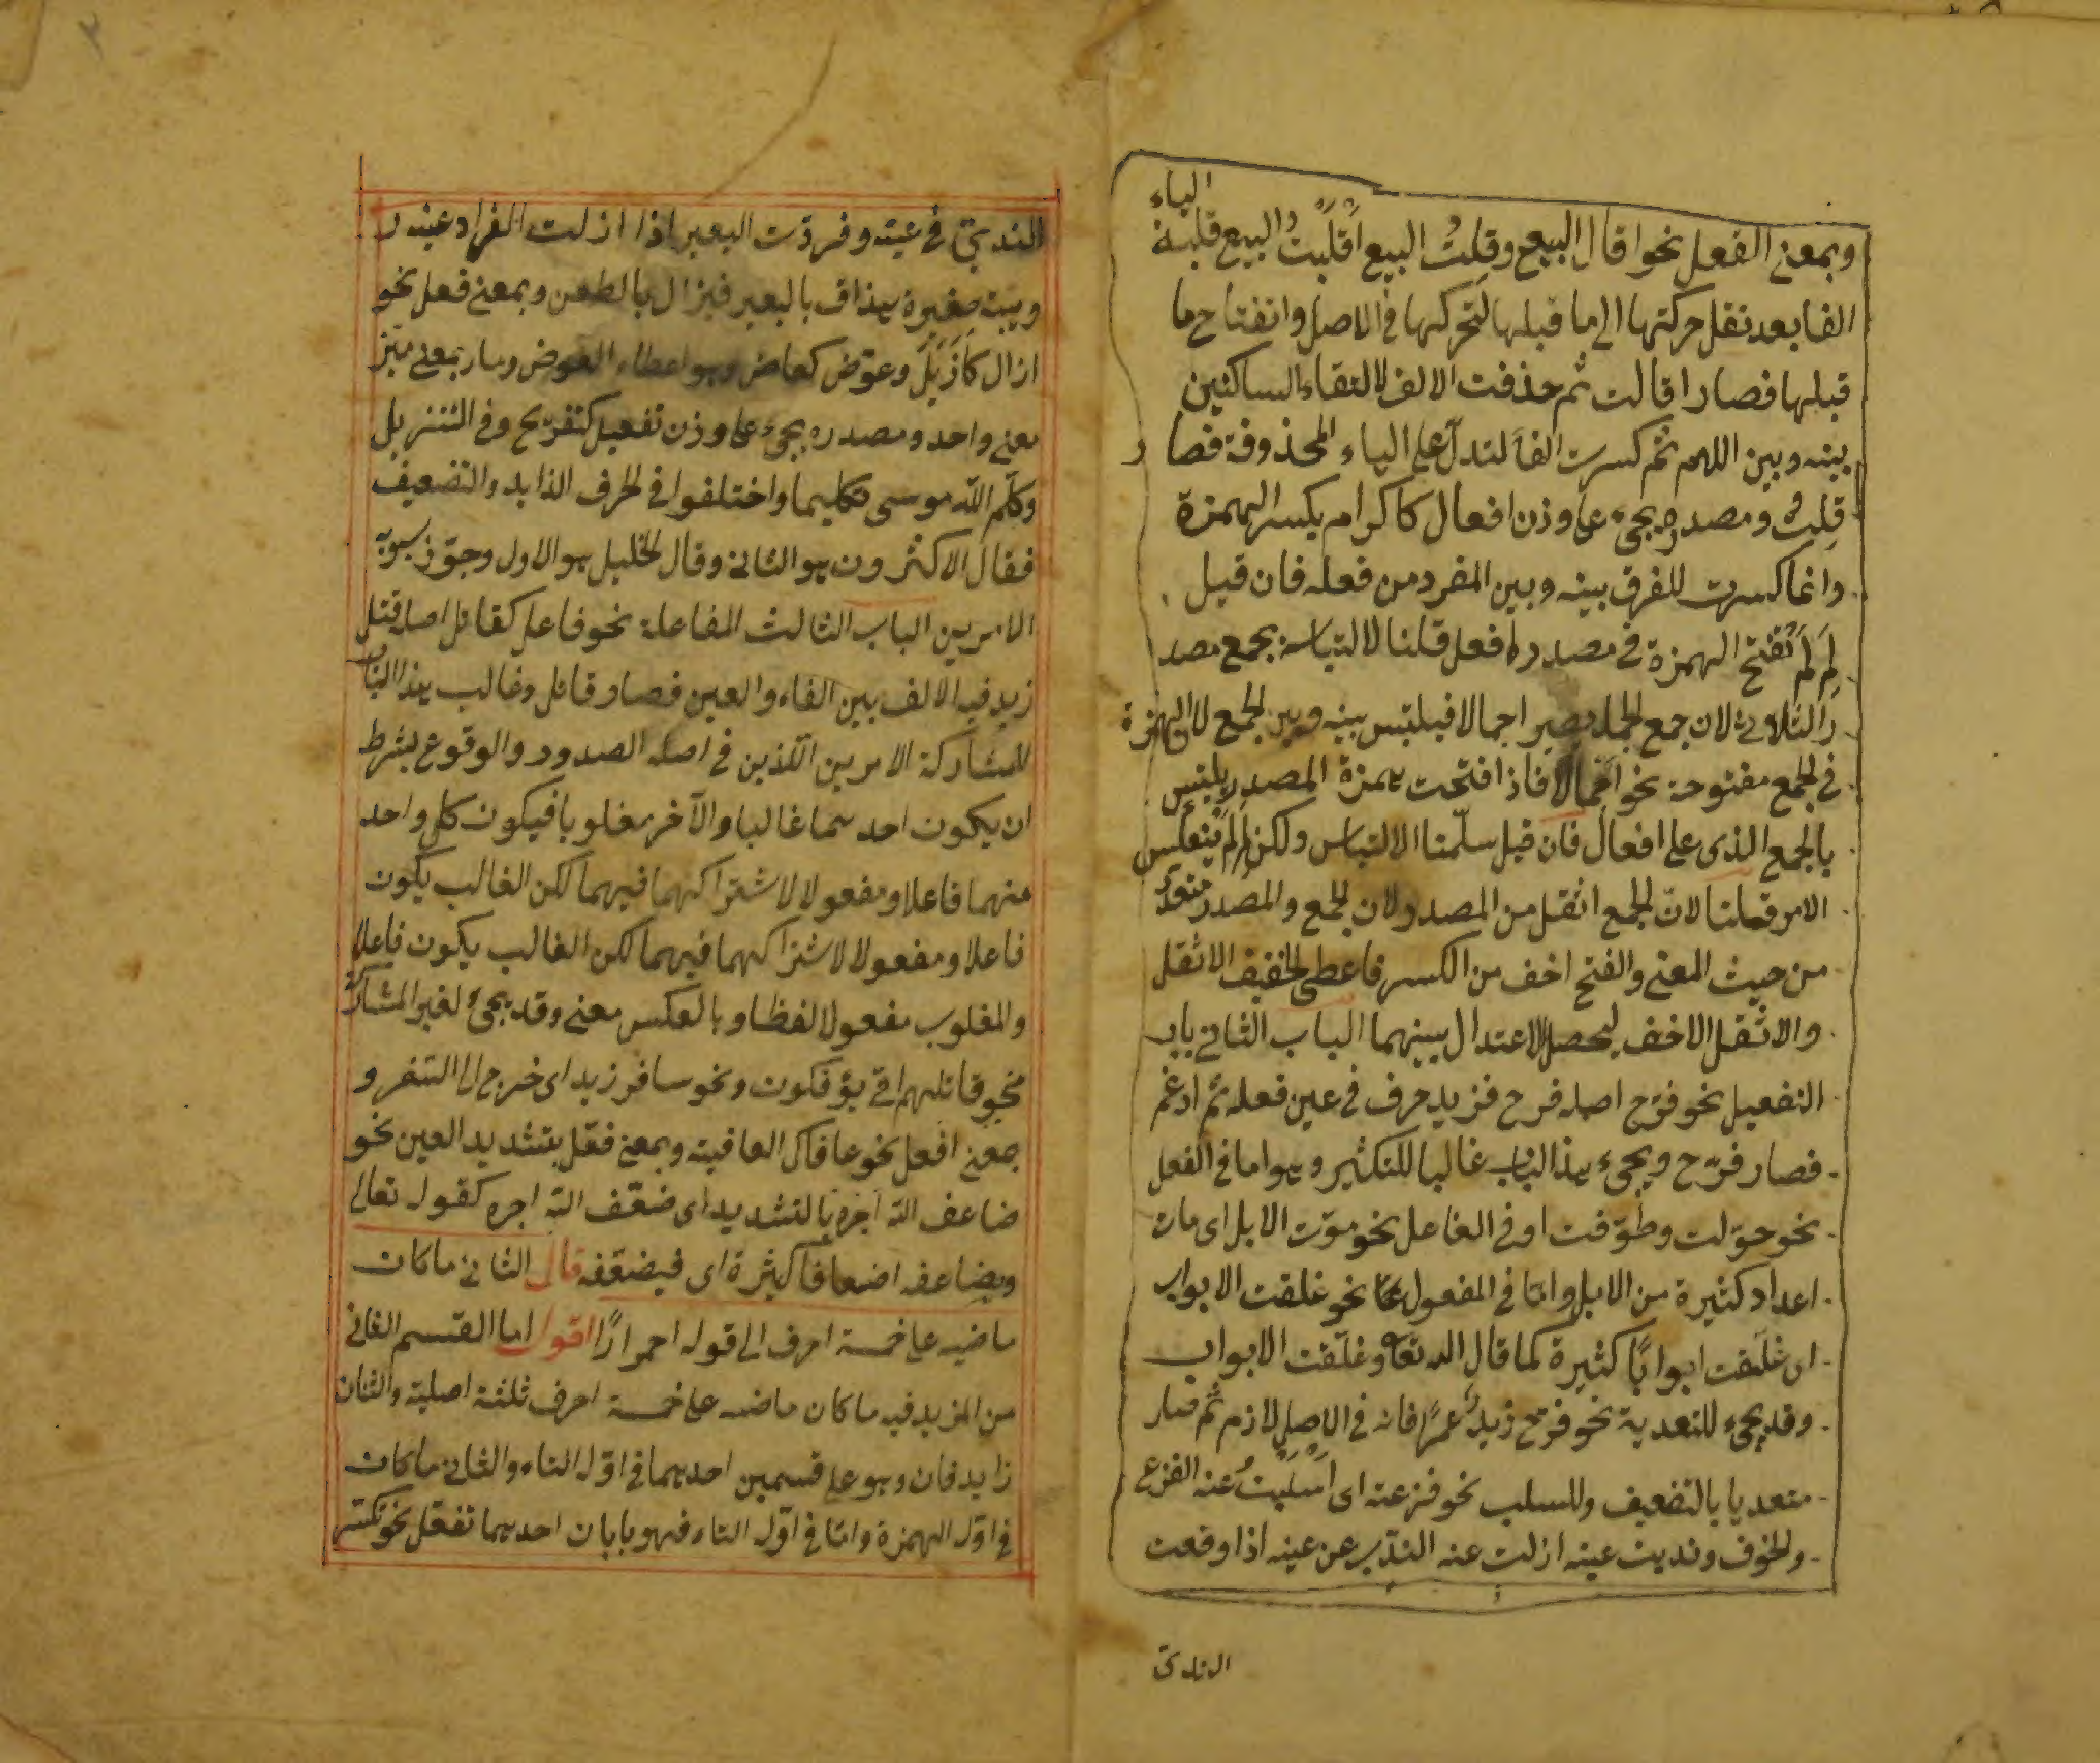 الياء
وبمعنى الفعل نحو اقال البيع وقلت البيع اقليت البيع قلبة
الفا بعد نقل حركتها الى ما قبلها لتحركها فى الاصل وانفتاح ما
قبلها فصار اقالت ثم حذفت الالف لالتقاء الساكنين
بينه وبين اللام ثم كسرت الفا لتدل على الياء المحذوفة فصار
قلت ومصدره يجئ على وزن افعال كاكرام بكسر الهمزة
وانما كسرت للفرق بينه وبين المفرد من فعله فان قيل
لم لم تفتح الهمزة فى مصدر افعل قلنا لالتباسه بجمع مصد
ر الثلاثى لان جمع الجمل يصير اجمالا فيلتبس بينه وبين الجمع لان الهمزة
فى الجمع مفتوحة نحو اجمالا فاذا فتحت همزة المصدر يلتبس
بالجمع الذى على افعال فان قيل سلمنا الالتباس ولكن لم لم ينعكس
الامر قلنا لان الجمع اثقل من المصدر لان الجمع والمصدر متعدد
من حيث المعنى والفتح اخف من الكسر فاعطى الخفيف الاثقل
والاثقل الاخف ليحصل الاعتدال بينهما الباب الثانى باب
التفعيل نحو فرّح اصله فرح فزيد حرف فى عين فعله ثم ادغم
فصار فرّح ويجئ هذا الباب غالبا للتكثير وهو اما فى الفعل
نحو حوّلت وطوّفت او فى الفاعل نحو موّت الابل اى مات
اعداد كثيرة من الابل واما فى المفعول نحو غلقت الابواب
اى غلّقت ابوابًا كثيرة كما قال الله تعا وغلّقت الابواب
وقد يجئ للتعدية نحو فرّح زيد عمرًا فانه فى الاصل لازم ثم صار
متعديا بالتضعيف وللسلب نحو فزعته اى اسلبت عنه الفزع
والخوف ونديت عينه ازلت عنه الندّى عن عينه اذا وقعت
الندى
الندىّ فى عينه وفردّت البعير اذا ازلت القراد عينه و
دبيبة صغيرة بالبعير فيزال بالطعن وبمعنى فعل نحو
ازال كَاَزْيَلَ وعوّض كعاض وهو اعطاء العوض وماز بمعنى ميّز
معنى واحد ومصدره يجئ على وزن تفعيل كتفريح وفى التنزيل
وكلّم الله موسى تكليما واختلفوا فى الحرف الزايد والتضعيف
فقال الاكثرون هو الثانى وقال الخليل هو الاول وجوّز سيبويه
الامرين الباب الثالث المفاعلة نحو فاعل كقاتل اصله قتل
زيد فيه الالف بين الفاء والعين فصار قاتل وغالب هذا الباب
للمشاركة الامرين اللّذين فى اصله الصدور والوقوع بشرط
ان يكون احدهما غالبا والآخر مغلوبا فيكون كل واحد
منهما فاعلا ومفعولا لاشتراكهما فيهما لكن الغالب يكون
فاعلا ومفعولا لاشتراكهما فيهما لكن الغالب يكون فاعلا
والمغلوب مفعولا لفظا وبالعكس معنى وقد يجئ لغير المشاركة
نحو قاتلهم انّى يؤفكون ونحو سافر زيد اى خرج الى السّفر و
بمعنى افعل نحو عافاك العافية وبمعنى فعّل بتشديد العين نحو
ضاعف الله اجره بالتشديد اى ضعّف الله اجره كقوله تعالى
ويضاعفه اضعافا كثيرة اى فيضعّفه قال الثانى ما كان
ماضيه على خمسة احرف الى قوله احمرارًا اقول اما القسم الثانى
من المزيد فيه ما كان ماضيه على خمسة احرف ثلثة اصلية واثنان
زايدان وهو على قسمين احدهما فى اوّله التاء والثانى ما كان
فى اوّله الهمزة وامّا فى اوّله التاء فهو بابان احدهما تفعّل نحو تكسّر